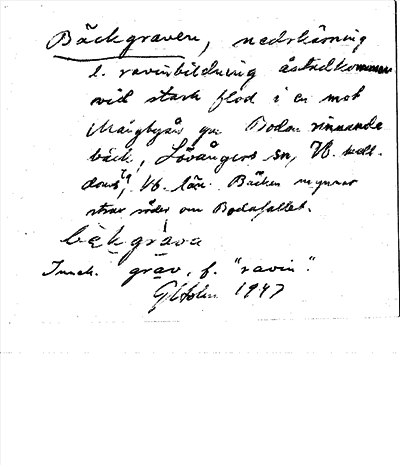 Bäckgraven, nedskärning
l. ravinbildning åstadkommen
vid stark flod i en mot
Mångbyån gm Bodan rinnande
bäck, Lövångers sn, Vb. 
, Vb. län. Bäcken mynnar
strax söder om Bodafallet.
bɛkgrava
grav, f. "ravin".
1947